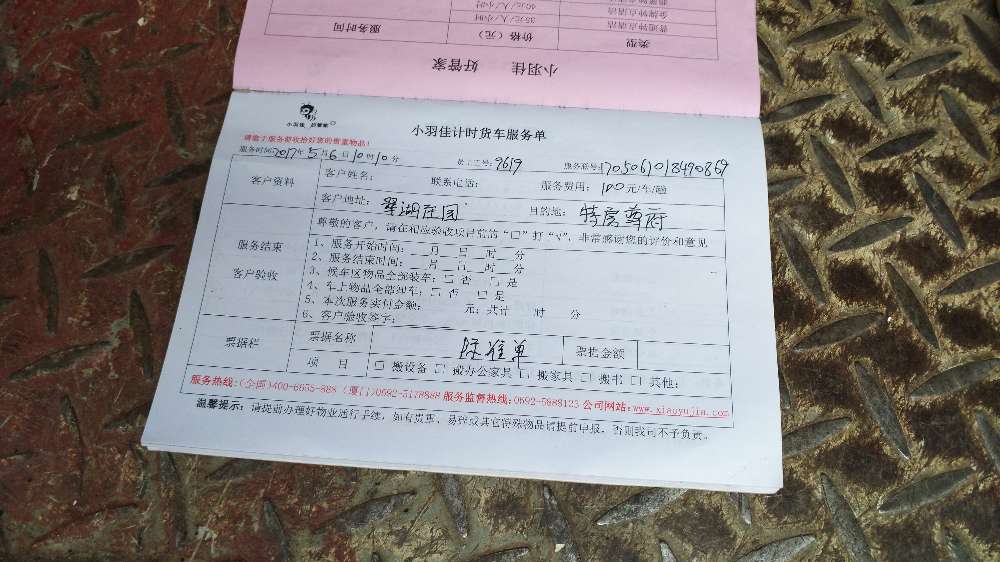 小羽佳 好管家
类型 价格（元） 服务时间
普通钟点清洁 35元/人/小时
金牌钟点清洁 40元/人/小时
小羽佳 好管家
小羽佳计时货车服务单
请您于服务前收拾好您的贵重物品！
服务时间:2017年5月6日10时10分 员工工号:9619 服务账号:1705061018490869
客户资料
客户姓名: 联系电话: 服务费用: 100元/车/趟
客户地址: 翠湖庄园 目的地: 特房尊府
服务结束
客户验收
尊敬的客户，请在相应验收项目前的“□”打“√”，非常感谢您的评价和意见
1、服务开始时间: __月__日__时__分
2、服务结束时间: __月__日__时__分
3、候车区物品全部装车: □否 □是
4、车上物品全部卸车: □否 □是
5、本次服务实付金额: 元；共计 时 分
6、客户验收签字:
票据栏
票据名称 标准单 票据金额
项 目 □搬设备 □搬办公家具 □搬家具 □搬书 □其他:
服务热线:(全国)400-6655-888 (厦门)0592-5178888 服务监督热线:0592-5888123 公司网站:www.xiaoyujia.com
温馨提示: 请提前办理好物业通行手续，如有贵重、易碎或其它特殊物品请提前申报，否则我司不予负责。